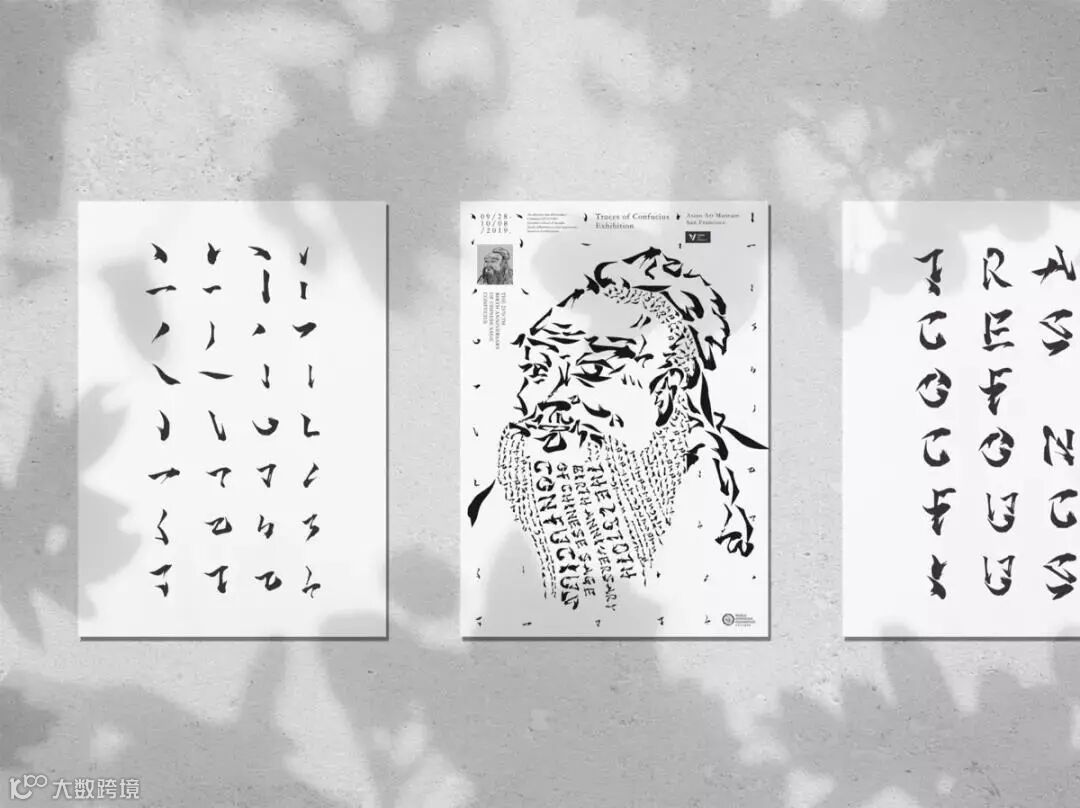 09/28-
10/08
/2019.
Traces of Confucius
Exhibition
Asian Art Museum
San Francisco
THE 2570TH
BIRTH ANNIVERSARY
OF CHINESE SAGE
CONFUCIUS
THE 2570TH
BIRTH ANNIVERSARY
OF CHINESE SAGE
CONFUCIUS
T R A
C E S
O F
C O N
F U C
I U S
大数跨境